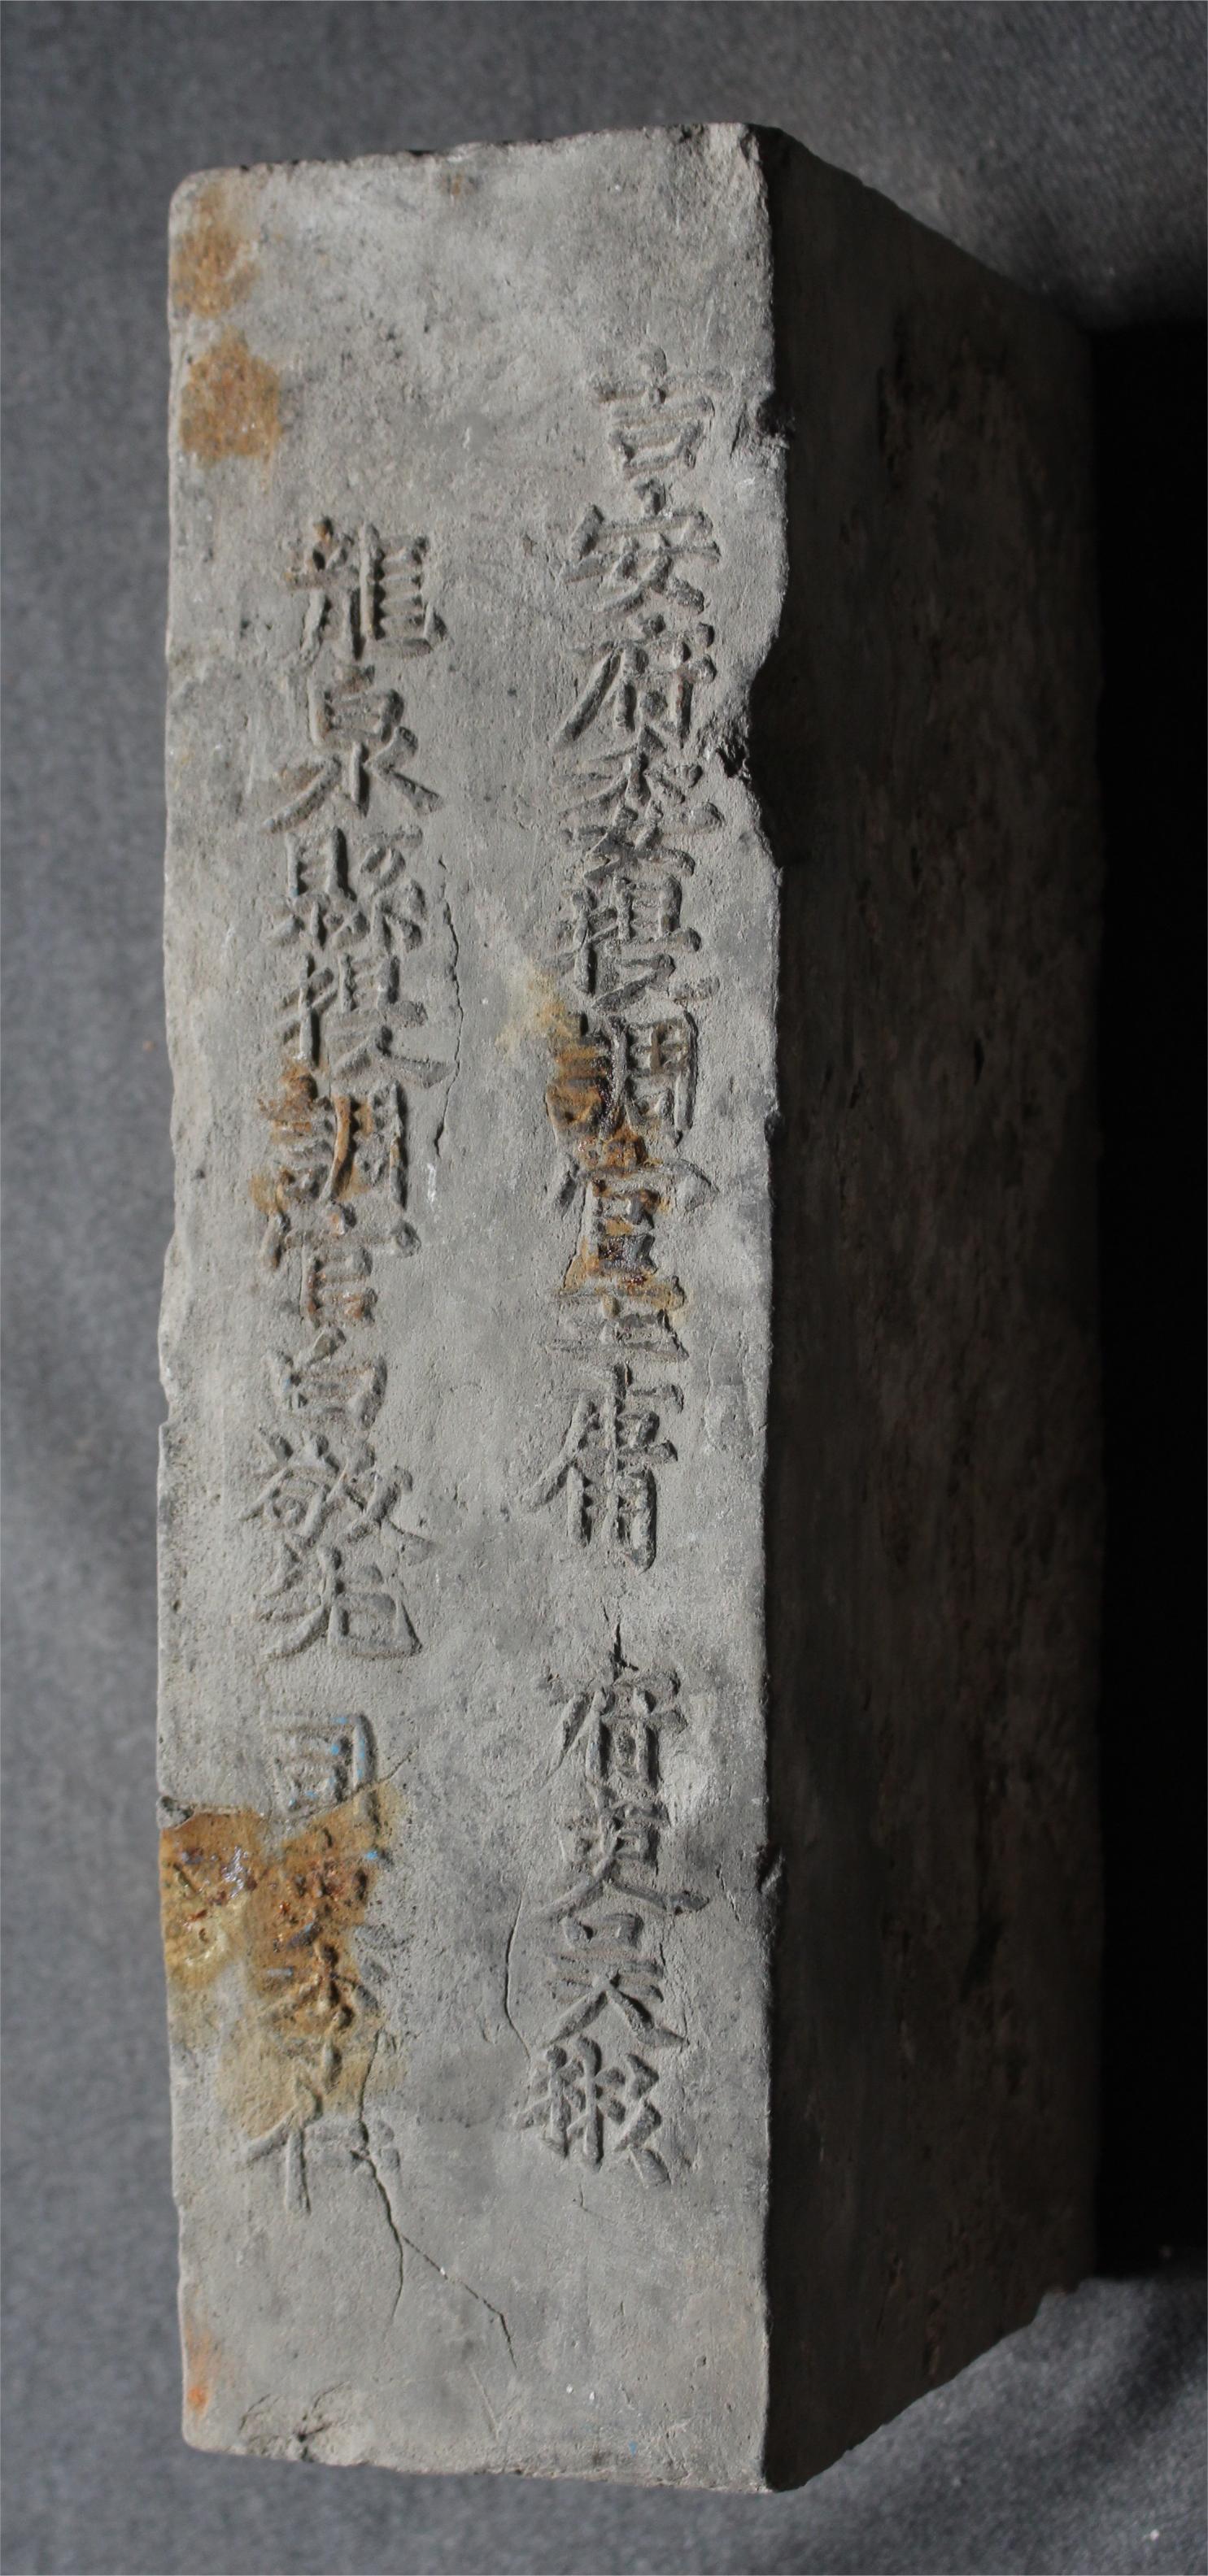 吉安府委提調官王庸 府吏吳
龍泉縣提調官白敬先 司